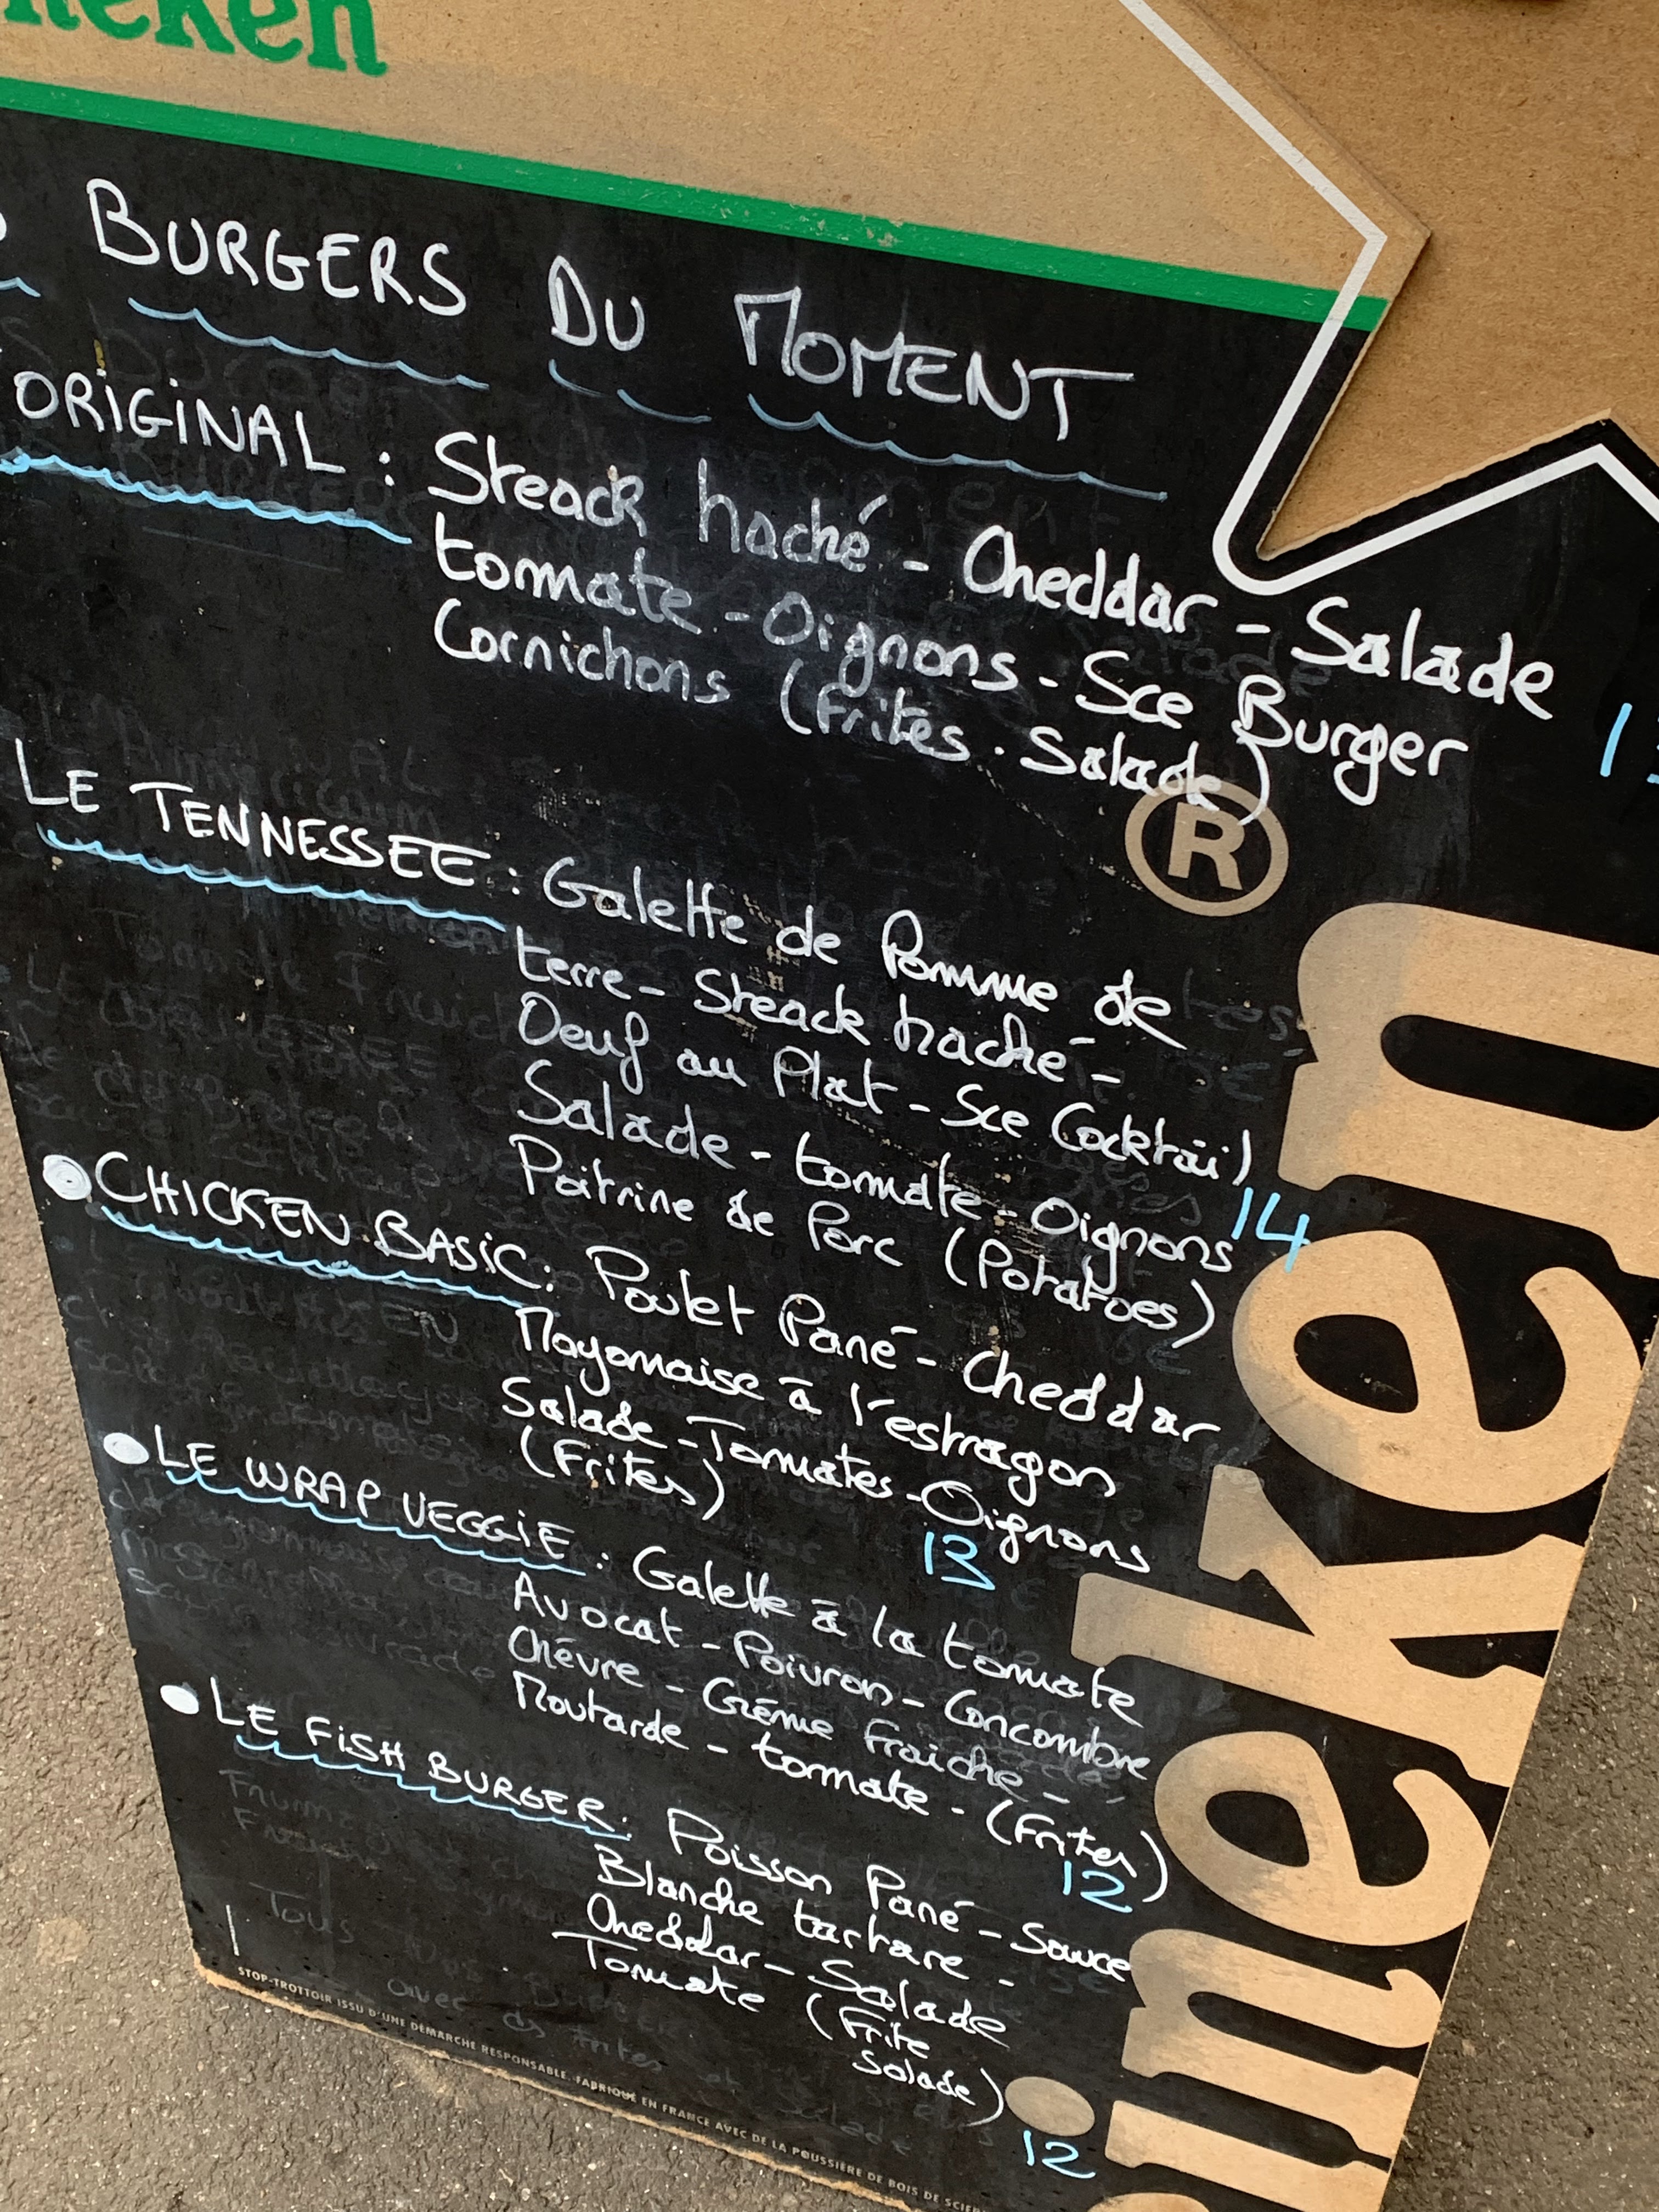 neken
BURGERS DU MOMENT
ORIGINAL : Steack haché - Cheddar - Salade
tomate - Oignons - Sce Burger
Cornichons (Frites. Salade)
LE TENNESSEE : Galette de Pomme de
terre - Steack haché -
Oeuf au Plat - Sce Cocktail
Salade - tomate - Oignons 14
Poitrine de Porc (Potatoes)
CHICKEN BASIC : Poulet Pané - Cheddar
Mayonaise à l'estragon
Salade - Tomates - Oignons
(Frites) 13
LE WRAP VEGGIE : Galette à la tomate
Avocat - Poivron - Concombre
Chévre - Créme Fraiche -
Moutarde - tomate - (Frites)
12
LE FISH BURGER : Poisson Pané - Sauce
Blanche tartare -
Cheddar - Salade
Tomate (Frite
Salade)
12
STOP-TROTTOIR ISSU D'UNE DÉMARCHE RESPONSABLE. FABRIQUÉ EN FRANCE AVEC DE LA POUSSIÈRE DE BOIS DE
ineken ®